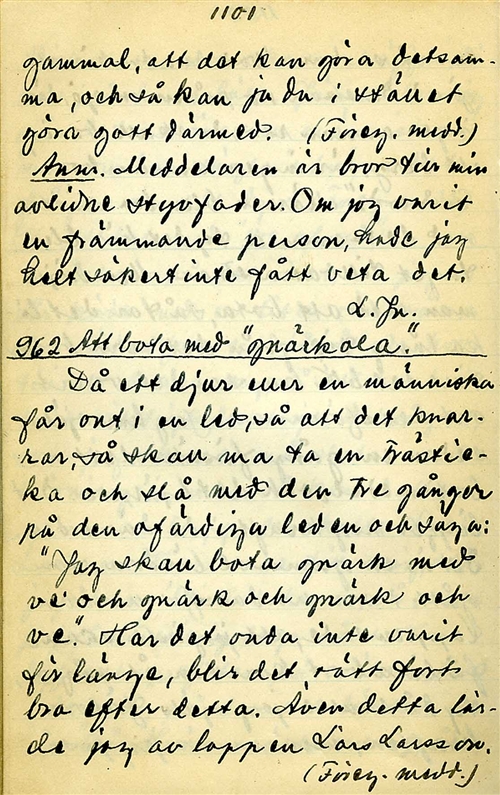 1101
gammal, att det kan göra detsam-
ma, och så kan ju du i stället
göra gott därmed. (Föreg. medd.)
Anm. Meddelaren är bror till min
avlidne styvfader. Om jag varit
en främmande person, hade jag
helt säkert inte fått veta det.
L. Jn.
962 Att bota med "gnärkola".
Då ett djur eller en människa
får ont i en led, så att det knar-
rar, så skall ma ta en trästic-
ka och slå med den tre gånger
på den ofärdiga leden och säga:
"Jag skall bota gnärk med
ve och gnärk och gnärk och
ve". Har det onda inte varit
för länge, blir det rätt fort
bra efter detta. Även detta lär-
de jag av lappen Lars Larsson.
(Föreg. medd.)